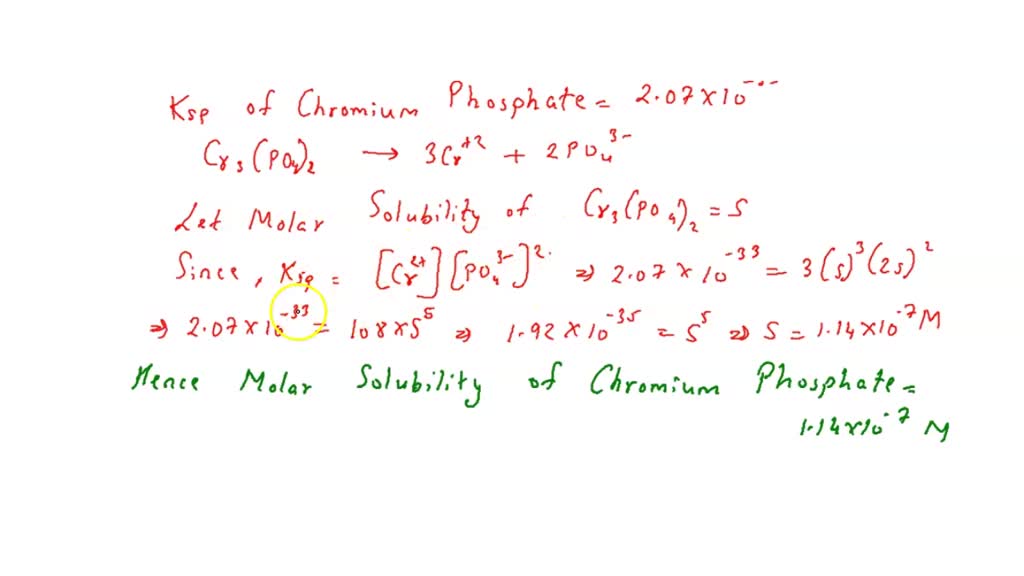 Ksp of Chromium Phosphate = 2.07×10
Cr₃(PO₄)₂ → 3Cr⁺² + 2PO₄³⁻
Let Molar Solubility of Cr₃(PO₄)₂ = S
Since, Ksp = [Cr²⁺][PO₄³⁻]² ⇒ 2.07×10⁻³³ = 3(s)³(2s)²
⇒ 2.07×10⁻³³ = 108×S⁵ ⇒ 1.92×10⁻³⁵ = S⁵ ⇒ S = 1.14×10⁻⁷M
Hence Molar Solubility of Chromium Phosphate =
1.14×10⁻⁷ M